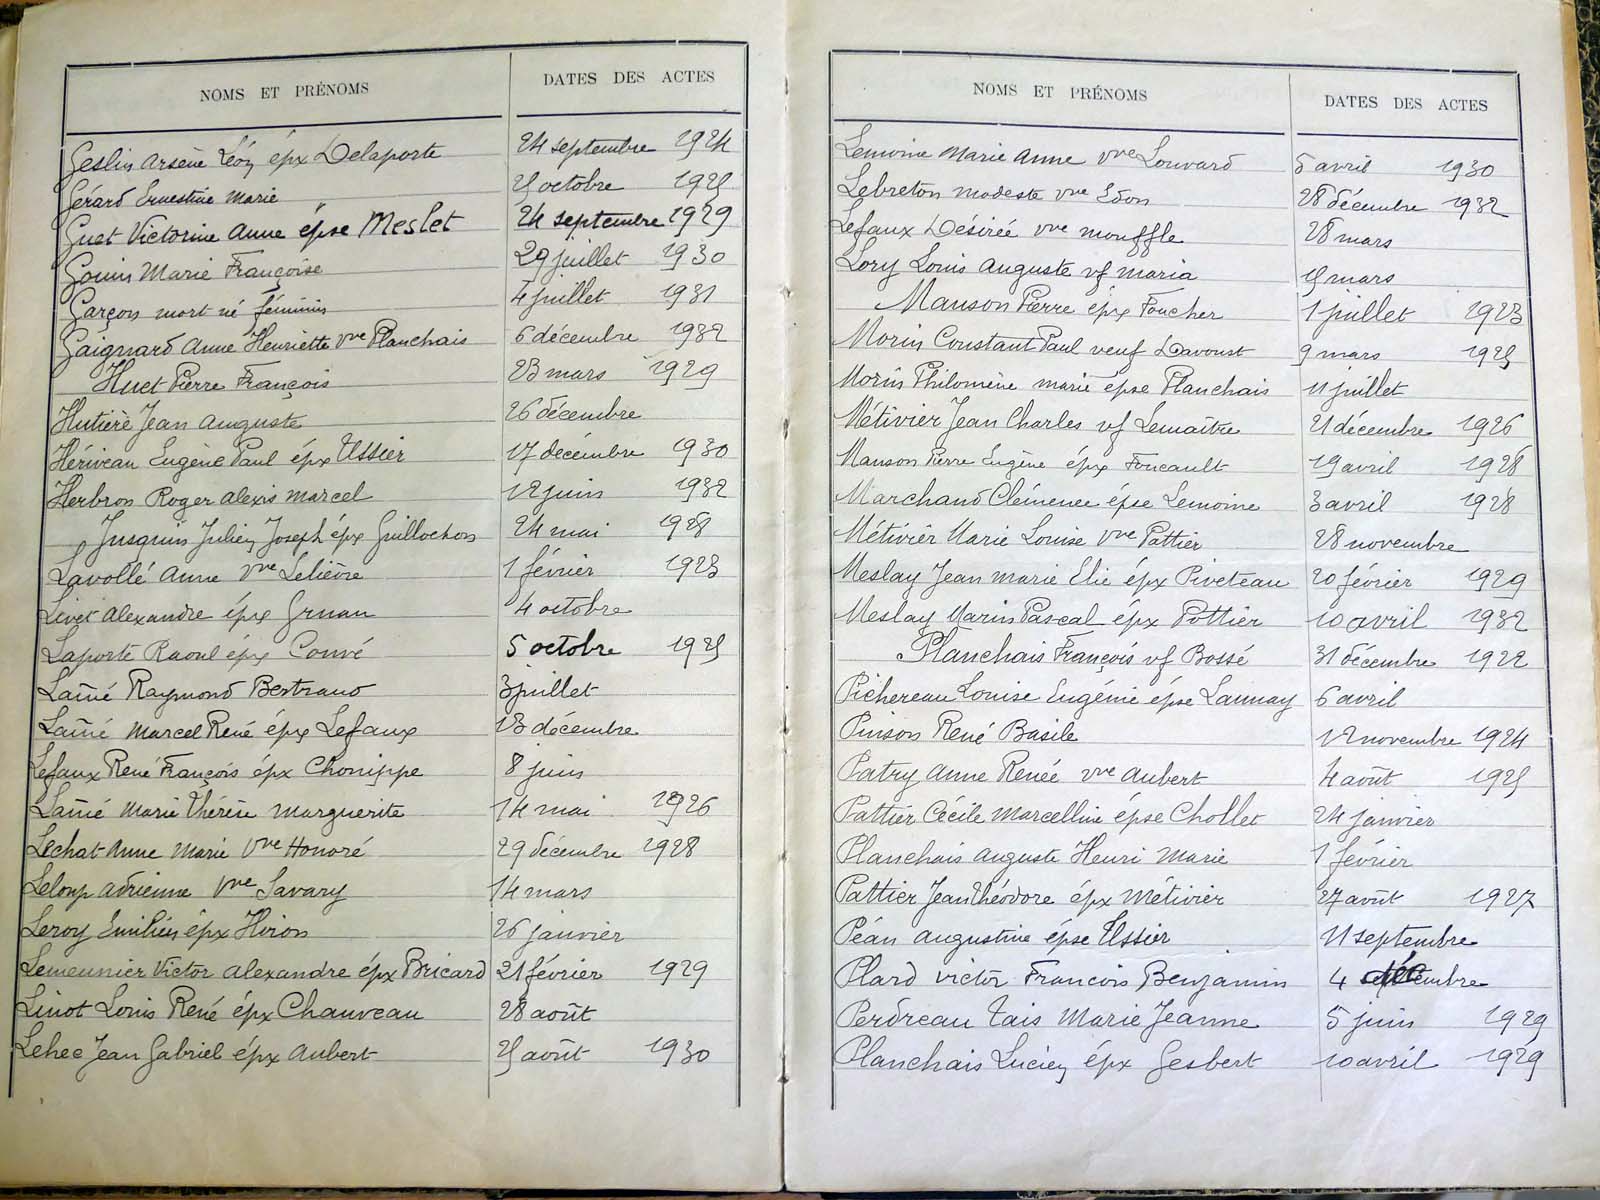 NOMS ET PRÉNOMS DATES DES ACTES
Geslin Arsène Léon épx Delaporte 24 septembre 1924
Gérard Ernestine Marie 25 octobre 1925
Guet Victorine Anne épse Meslet 24 septembre 1929
Gouin Marie Françoise 29 juillet 1930
Garçon mort né féminin 4 juillet 1931
Gaignard Anne Henriette vve Planchais 6 décembre 1932
Huet Pierre François 23 mars 1929
Hutière Jean Auguste 26 décembre
Hériveau Eugène Paul épx Ussier 17 décembre 1930
Herbron Roger Alexis Marcel 12 juin 1932
Jusquin Julien Joseph épx Guillochon 24 mai 1928
Lavollé Anne vve Lelièvre 1 février 1923
Livet Alexandre épx Gruau 4 octobre
Laporte Raoul épx Couvé 5 octobre 1925
Lamé Raymond Bertrand 3 juillet
Lamé Marcel René épx Lefaux 13 décembre
Lefaux René François épx Chonippe 8 juin
Lamé Marie Thérèse Marguerite 14 mai 1926
Lechat Anne Marie Vve Honoré 29 décembre 1928
Leloup Adrienne Vve Savary 14 mars
Leroy Emilien épx Hiron 26 janvier
Lemeunier Victor Alexandre épx Bricard 21 février 1929
Linot Louis René épx Chauveau 28 août
Lehec Jean Gabriel épx Aubert 25 août 1930
NOMS ET PRÉNOMS DATES DES ACTES
Lemoine Marie Anne vve Louvard 5 avril 1930
Lebreton Modeste vve Edon 28 décembre 1932
Lefaux Désirée vve Mouffle 28 mars
Lory Louis Auguste vf Maria mars
Manson Pierre épx Foucher 1 juillet 1923
Morin Constant Paul veuf Davoust 9 mars 1925
Morin Philomène Marie épse Planchais 11 juillet
Métivier Jean Charles vf Lemaître 21 décembre 1926
Manson Pierre Eugène épx Foucault 19 avril 1928
Marchand Clémence épse Lemoine 3 avril 1928
Métivier Marie Louise vve Pattier 28 novembre
Meslay Jean Marie Elie épx Piveteau 20 février 1929
Meslay Marin Pascal épx Pottier 10 avril 1932
Planchais François vf Bossé 31 décembre 1922
Pichereau Louise Eugénie épse Launay 6 avril
Pinson René Basile 12 novembre 1924
Patry Anne Renée vve Aubert 4 août 1925
Pattier Cécile Marcelline épse Chollet 24 janvier
Planchais Auguste Henri Marie 1 février
Pattier Jean Théodore épx Métivier 27 août 1927
Péan Augustine épse Ussier 11 septembre
Plard Victor François Benjamin 4
Perdreau Tais Marie Jeanne 5 juin 1929
Planchais Lucien épx Gesbert 10 avril 1929